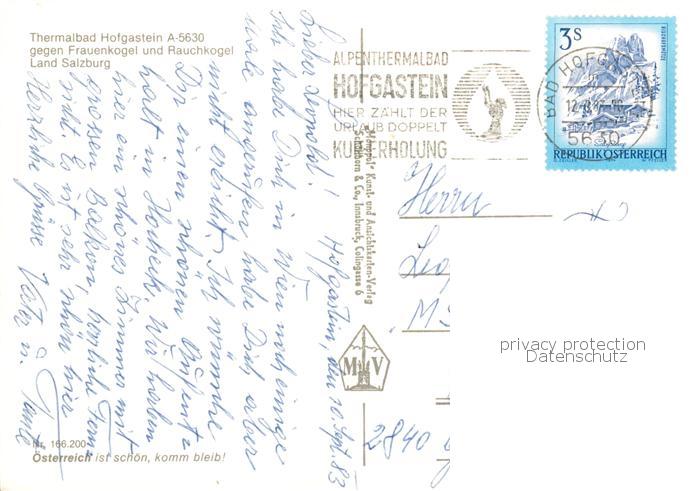 Thermalbad Hofgastein A-5630
gegen Frauenkogel und Rauchkogel
Land Salzburg
ALPENTHERMALBAD
HOFGASTEIN
HIER ZÄHLT DER
URLAUB DOPPELT
KUR ERHOLUNG
3S
BAD HOFGASTEIN
5630
REPUBLIK ÖSTERREICH
Hofgastein, den 10. Sept. 83
Lieber Leopold!
Ich habe Dich in Wien noch einige
Male anrufen, habe Dich aber
nicht erreicht. Ich wünsche
Dir einen schönen Aufent-
halt in
Wir haben
hier ein schönes Zimmer mit
grossem Balkon, herrliche Fern-
sicht. Es ist sehr schön hier
Herzliche Grüsse
"Monopol" Kunst- und Ansichtskarten-Verlag
Schöllhorn & Co., Innsbruck, Colingasse 6
M V
Herrn
Leop
2840
privacy protection
Datenschutz
Nr. 166.200
Österreich ist schön, komm bleib!